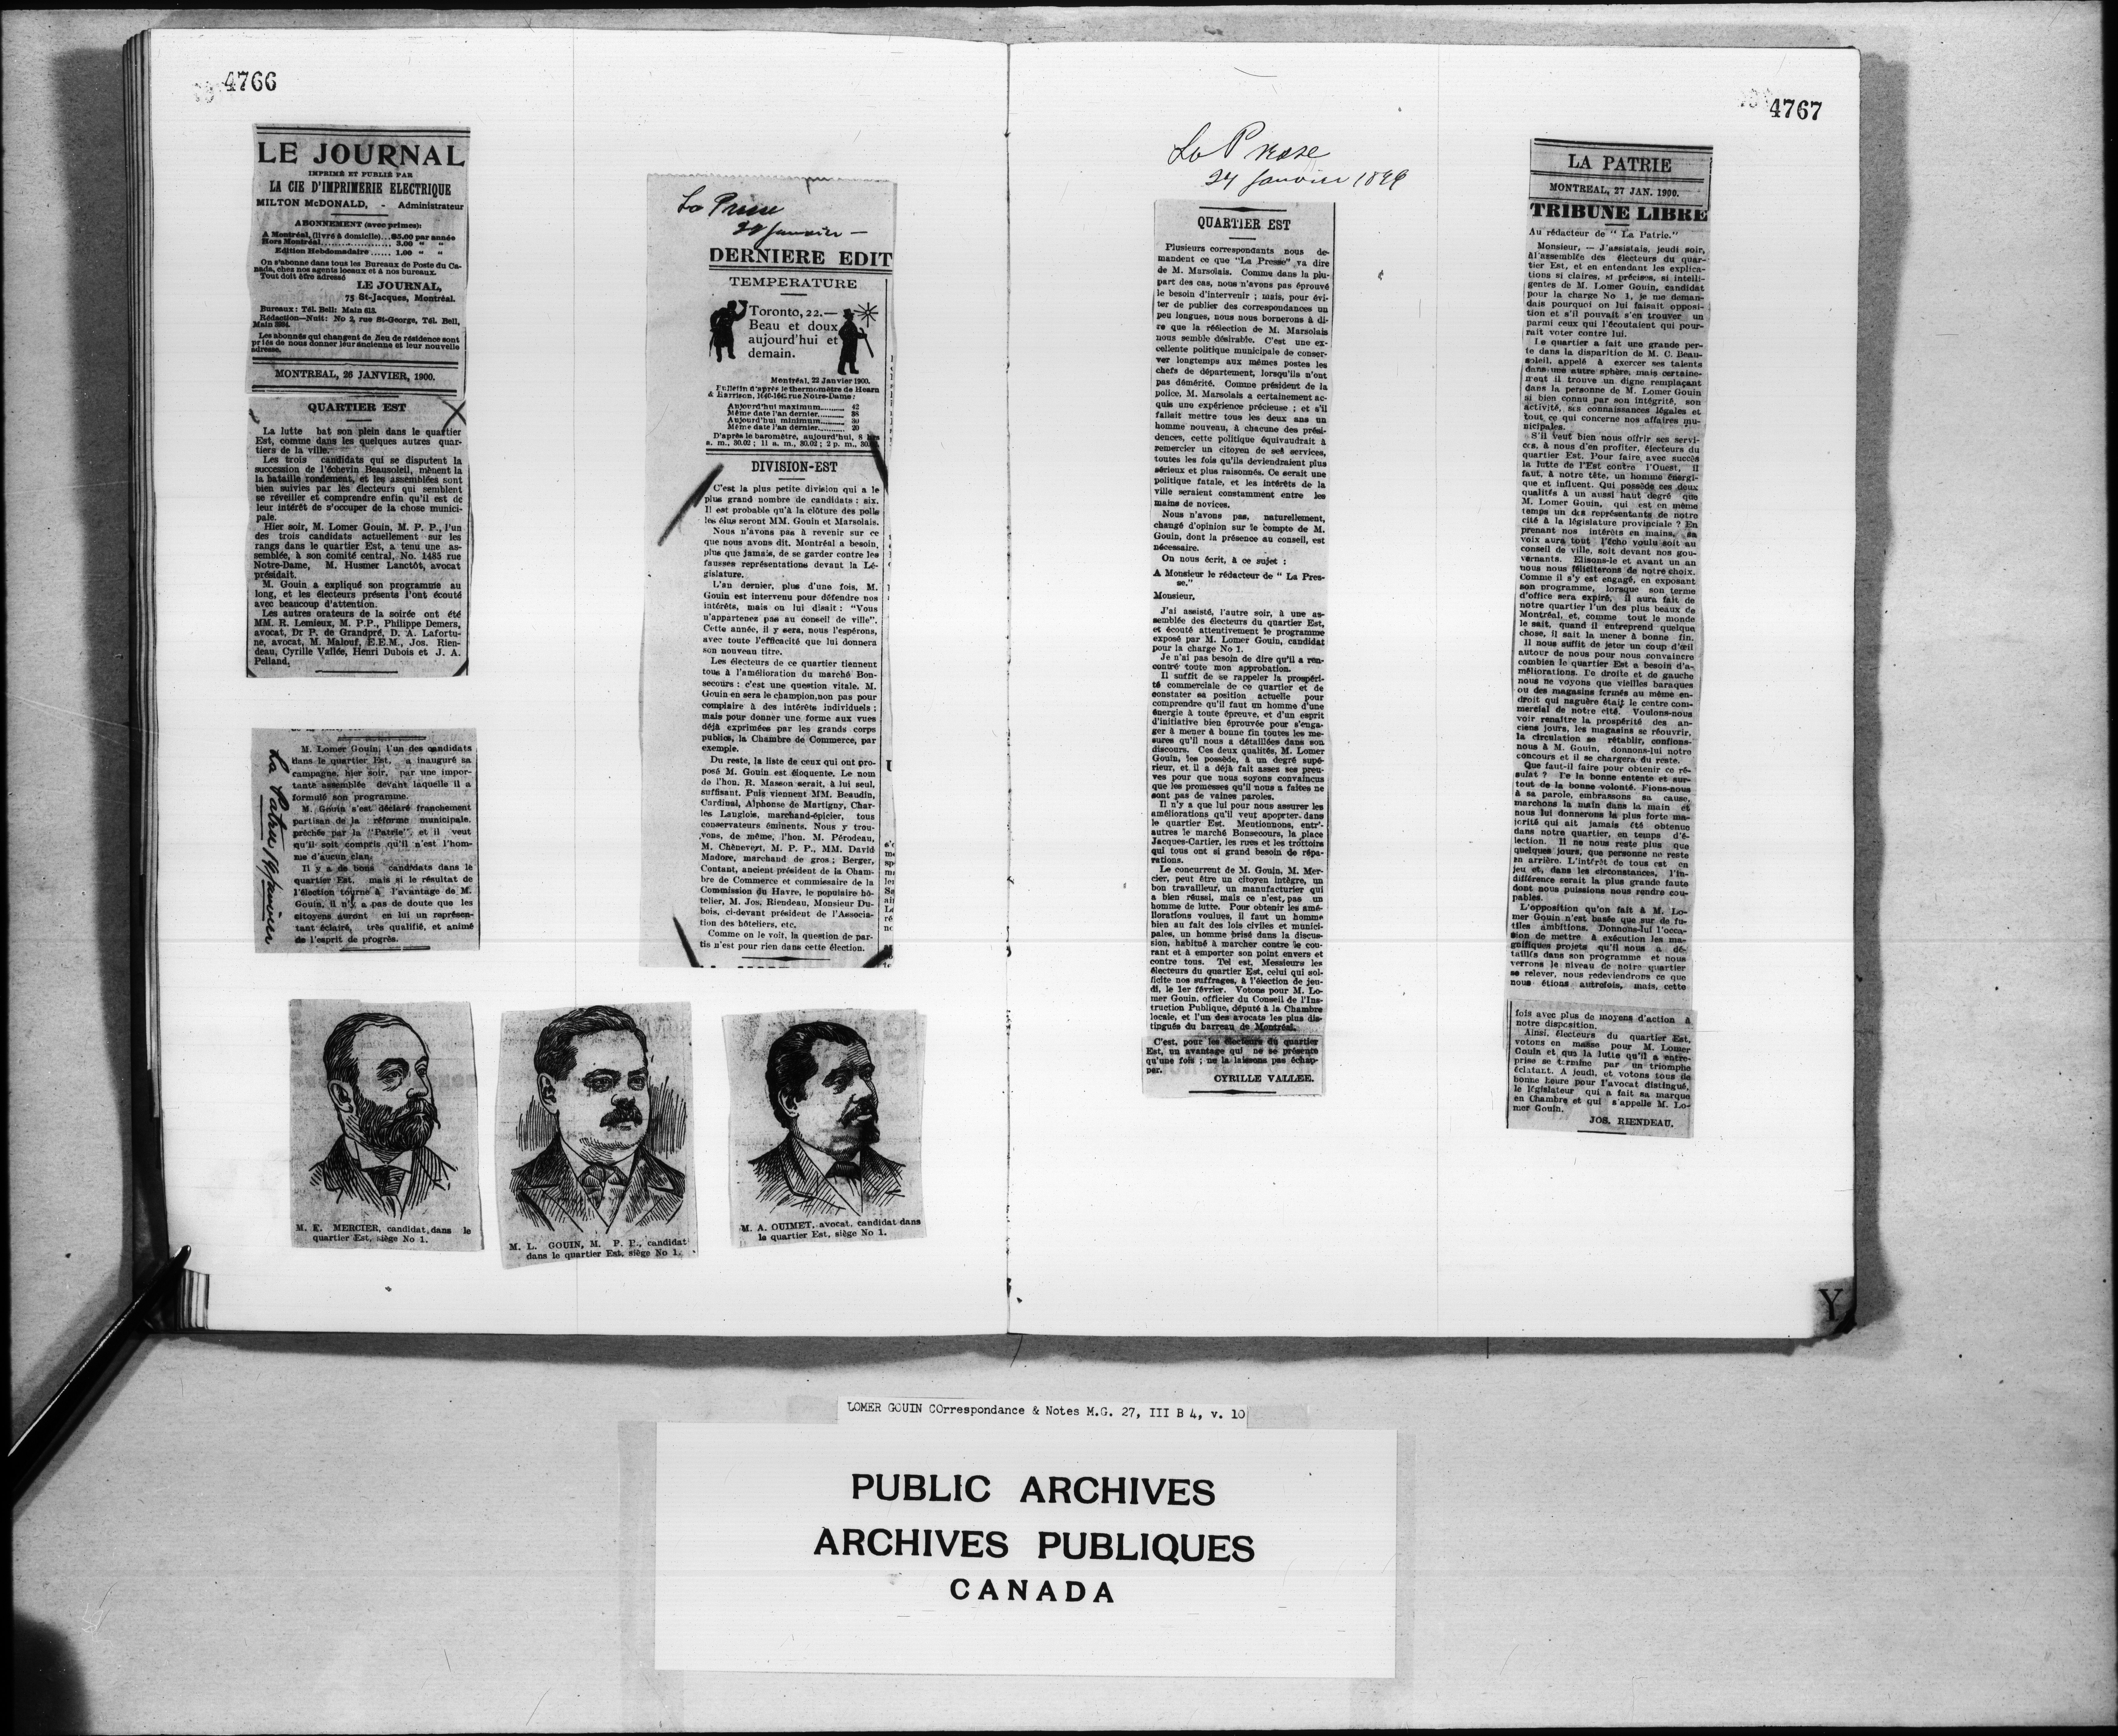 4766
LE JOURNAL
IMPRIMÉ ET PUBLIÉ PAR
LA CIE D'IMPRIMERIE ELECTRIQUE
MILTON McDONALD, - Administrateur
ABONNEMENT (avec primes):
A Montréal, (livré à domicile)... $5.00 par année
Hors Montréal.................. 3.00 " "
Edition Hebdomadaire ...... 1.00 " "
On s'abonne dans tous les Bureaux de Poste du Ca-
nada, chez nos agents locaux et à nos bureaux.
Tout doit être adressé
LE JOURNAL,
75 St-Jacques, Montréal.
Bureaux: Tél. Bell: Main 613.
Rédaction—Nuit: No 2, rue St-George, Tél. Bell,
Main
Les abonnés qui changent de lieu de résidence sont
priés de nous donner leur ancienne et leur nouvelle
adresse.
MONTREAL, 26 JANVIER, 1900.
QUARTIER EST
La lutte bat son plein dans le quartier
Est, comme dans les quelques autres quar-
tiers de la ville.
Les trois candidats qui se disputent la
succession de l'échevin Beausoleil, mènent la
bataille rondement, et les assemblées sont
bien suivies par les électeurs qui semblent
se réveiller et comprendre enfin qu'il est de
leur intérêt de s'occuper de la chose munici-
pale.
Hier soir, M. Lomer Gouin, M. P. P., l'un
des trois candidats actuellement sur les
rangs dans le quartier Est, a tenu une as-
semblée, à son comité central, No. 1485 rue
Notre-Dame, M. Husmer Lanctôt, avocat
présidait.
M. Gouin a expliqué son programme au
long, et les électeurs présents l'ont écouté
avec beaucoup d'attention.
Les autres orateurs de la soirée ont été
MM. R. Lemieux, M. P.P., Philippe Demers,
avocat, Dr P. de Grandpré, D. A. Lafortu-
ne, avocat, M. Malouf, E.E.M., Jos. Rien-
deau, Cyrille Vallée, Henri Dubois et J. A.
Pelland.
La Patrie janvier
M. Lomer Gouin, l'un des candidats
dans le quartier Est, a inauguré sa
campagne, hier soir, par une impor-
tante assemblée devant laquelle il a
formulé son programme.
M. Gouin s'est déclaré franchement
partisan de la réforme municipale,
prêchée par la "Patrie", et il veut
qu'il soit compris qu'il n'est l'hom-
me d'aucun clan.
Il y a de bons candidats dans le
quartier Est, mais si le résultat de
l'élection tourne à l'avantage de M.
Gouin, il n'y a pas de doute que les
citoyens auront en lui un représen-
tant éclairé, très qualifié, et animé
de l'esprit de progrès.
M. E. MERCIER, candidat dans le
quartier Est, siège No 1.
M. L. GOUIN, M. P. P., candidat
dans le quartier Est, siège No 1.
M. A. OUIMET, avocat, candidat dans
le quartier Est, siège No 1.
La Presse
janvier —
DERNIERE EDIT
TEMPERATURE
Toronto, 22.—
Beau et doux
aujourd'hui et
demain.
Montréal, 22 Janvier 1900.
Bulletin d'après le thermomètre de Hearn
& Harrison, 1640-1642 rue Notre-Dame:
Aujourd'hui maximum......... 42
Même date l'an dernier......... 38
Aujourd'hui minimum......... 30
Même date l'an dernier......... 20
D'après le baromètre, aujourd'hui, 8 hrs
a. m., 30.02 ; 11 a. m., 30.02 ; 2 p. m., 30.
DIVISION-EST
C'est la plus petite division qui a le
plus grand nombre de candidats : six.
Il est probable qu'à la clôture des polls
les élus seront MM. Gouin et Marsolais.
Nous n'avons pas à revenir sur ce
que nous avons dit. Montréal a besoin,
plus que jamais, de se garder contre les
fausses représentations devant la Lé-
gislature.
L'an dernier, plus d'une fois, M.
Gouin est intervenu pour défendre nos
intérêts, mais on lui disait : "Vous
n'appartenez pas au conseil de ville".
Cette année, il y sera, nous l'espérons,
avec toute l'efficacité que lui donnera
son nouveau titre.
Les électeurs de ce quartier tiennent
tous à l'amélioration du marché Bon-
secours : c'est une question vitale. M.
Gouin en sera le champion, non pas pour
complaire à des intérêts individuels ;
mais pour donner une forme aux vues
déjà exprimées par les grands corps
publics, la Chambre de Commerce, par
exemple.
Du reste, la liste de ceux qui ont pro-
posé M. Gouin est éloquente. Le nom
de l'hon. R. Masson serait, à lui seul,
suffisant. Puis viennent MM. Beaudin,
Cardinal, Alphonse de Martigny, Char-
les Langlois, marchand-épicier, tous
conservateurs éminents. Nous y trou-
vons, de même, l'hon. M. Pérodeau,
M. Chênevert, M. P. P., MM. David
Madore, marchand de gros ; Berger,
Contant, ancien président de la Cham-
bre de Commerce et commissaire de la
Commission du Havre, le populaire hô-
telier, M. Jos. Riendeau, Monsieur Du-
bois, ci-devant président de l'Associa-
tion des hôteliers, etc.
Comme on le voit, la question de par-
tis n'est pour rien dans cette élection.
4767
La Presse
24 janvier
QUARTIER EST
Plusieurs correspondants nous de-
mandent ce que "La Presse" va dire
de M. Marsolais. Comme dans la plu-
part des cas, nous n'avons pas éprouvé
le besoin d'intervenir ; mais, pour évi-
ter de publier des correspondances un
peu longues, nous nous bornerons à di-
re que la réélection de M. Marsolais
nous semble désirable. C'est une ex-
cellente politique municipale de conser-
ver longtemps aux mêmes postes les
chefs de département, lorsqu'ils n'ont
pas démérité. Comme président de la
police, M. Marsolais a certainement ac-
quis une expérience précieuse ; et s'il
fallait mettre tous les deux ans un
homme nouveau, à chacune des prési-
dences, cette politique équivaudrait à
remercier un citoyen de ses services,
toutes les fois qu'ils deviendraient plus
sérieux et plus raisonnés. Ce serait une
politique fatale, et les intérêts de la
ville seraient constamment entre les
mains de novices.
Nous n'avons pas, naturellement,
changé d'opinion sur le compte de M.
Gouin, dont la présence au conseil, est
nécessaire.
On nous écrit, à ce sujet :
A Monsieur le rédacteur de " La Pres-
se."
Monsieur,
J'ai assisté, l'autre soir, à une as-
semblée des électeurs du quartier Est,
et écouté attentivement le programme
exposé par M. Lomer Gouin, candidat
pour la charge No 1.
Je n'ai pas besoin de dire qu'il a ren-
contré toute mon approbation.
Il suffit de se rappeler la prospéri-
té commerciale de ce quartier et de
constater sa position actuelle pour
comprendre qu'il faut un homme d'une
énergie à toute épreuve, et d'un esprit
d'initiative bien éprouvée pour s'enga-
ger à mener à bonne fin toutes les me-
sures qu'il nous a détaillées dans son
discours. Ces deux qualités, M. Lomer
Gouin, les possède, à un degré supé-
rieur, et il a déjà fait assez ses preu-
ves pour que nous soyons convaincus
que les promesses qu'il nous a faites ne
sont pas de vaines paroles.
Il n'y a que lui pour nous assurer les
améliorations qu'il veut apporter dans
le quartier Est. Mentionnons, entr'-
autres le marché Bonsecours, la place
Jacques-Cartier, les rues et les trottoirs
qui tous ont si grand besoin de répa-
rations.
Le concurrent de M. Gouin, M. Mer-
cier, peut être un citoyen intègre, un
bon travailleur, un manufacturier qui
a bien réussi, mais ce n'est pas un
homme de lutte. Pour obtenir les amé-
liorations voulues, il faut un homme
bien au fait des lois civiles et munici-
pales, un homme brisé dans la discus-
sion, habitué à marcher contre le cou-
rant et à emporter son point envers et
contre tous. Tel est, Messieurs les
électeurs du quartier Est, celui qui sol-
licite nos suffrages, à l'élection de jeu-
di, le 1er février. Votons pour M. Lo-
mer Gouin, officier du Conseil de l'Ins-
truction Publique, député à la Chambre
locale, et l'un des avocats les plus dis-
tingués du barreau de Montréal.
C'est, pour les électeurs du quartier
Est, un avantage qui ne se présente
qu'une fois ; ne la laissons pas échap-
per.
CYRILLE VALLEE.
LA PATRIE
MONTREAL, 27 JAN. 1900.
TRIBUNE LIBRE
Au rédacteur de " La Patrie."
Monsieur, — J'assistais, jeudi soir,
à l'assemblée des électeurs du quar-
tier Est, et en entendant les explica-
tions si claires, si précises, si intelli-
gentes de M. Lomer Gouin, candidat
pour la charge No 1, je me deman-
dais pourquoi on lui faisait opposi-
tion et s'il pouvait s'en trouver un
parmi ceux qui l'écoutaient qui pour-
rait voter contre lui.
Le quartier a fait une grande per-
te dans la disparition de M. C. Beau-
soleil, appelé à exercer ses talents
dans une autre sphère, mais certaine-
ment il trouve un digne remplaçant
dans la personne de M. Lomer Gouin
si bien connu par son intégrité, son
activité, ses connaissances légales et
tout ce qui concerne nos affaires mu-
nicipales.
S'il veut bien nous offrir ses servi-
ces, à nous d'en profiter, électeurs du
quartier Est. Pour faire avec succès
la lutte de l'Est contre l'Ouest, il
faut, à notre tête, un homme énergi-
que et influent. Qui possède ces deux
qualités à un aussi haut degré que
M. Lomer Gouin, qui est en même
temps un des représentants de notre
cité à la législature provinciale ? En
prenant nos intérêts en mains, sa
voix aura tout l'écho voulu soit au
conseil de ville, soit devant nos gou-
vernants. Elisons-le et avant un an
nous nous féliciterons de notre choix.
Comme il s'y est engagé, en exposant
son programme, lorsque son terme
d'office sera expiré, il aura fait de
notre quartier l'un des plus beaux de
Montréal, et, comme tout le monde
le sait, quand il entreprend quelque
chose, il sait la mener à bonne fin.
Il nous suffit de jeter un coup d'œil
autour de nous pour nous convaincre
combien le quartier Est a besoin d'a-
méliorations. De droite et de gauche
nous ne voyons que vieilles baraques
ou des magasins fermés au même en-
droit qui naguère était le centre com-
mercial de notre cité. Voulons-nous
voir renaître la prospérité des an-
ciens jours, les magasins se réouvrir,
la circulation se rétablir, confions-
nous à M. Gouin, donnons-lui notre
concours et il se chargera du reste.
Que faut-il faire pour obtenir ce ré-
sulat ? De la bonne entente et sur-
tout de la bonne volonté. Fions-nous
à sa parole, embrassons sa cause,
marchons la main dans la main et
nous lui donnerons la plus forte ma-
jorité qui ait jamais été obtenue
dans notre quartier, en temps d'é-
lection. Il ne nous reste plus que
quelques jours, que personne ne reste
en arrière. L'intérêt de tous est en
jeu et, dans les circonstances, l'in-
différence serait la plus grande faute
dont nous puissions nous rendre cou-
pables.
L'opposition qu'on fait à M. Lo-
mer Gouin n'est basée que sur de fu-
tiles ambitions. Donnons-lui l'occa-
sion de mettre à exécution les ma-
gnifiques projets qu'il nous a dé-
taillés dans son programme et nous
verrons le niveau de notre quartier
se relever, nous redeviendrons ce que
nous étions autrefois, mais, cette
fois avec plus de moyens d'action à
notre disposition.
Ainsi, électeurs du quartier Est,
votons en masse pour M. Lomer
Gouin et que la lutte qu'il a entre-
prise se termine par un triomphe
éclatant. A jeudi, et votons tous de
bonne heure pour l'avocat distingué,
le législateur qui a fait sa marque
en Chambre et qui s'appelle M. Lo-
mer Gouin.
JOS. RIENDEAU.
Y
LOMER GOUIN COrrespondance & Notes M.G. 27, III B 4, v. 10
PUBLIC ARCHIVES
ARCHIVES PUBLIQUES
CANADA